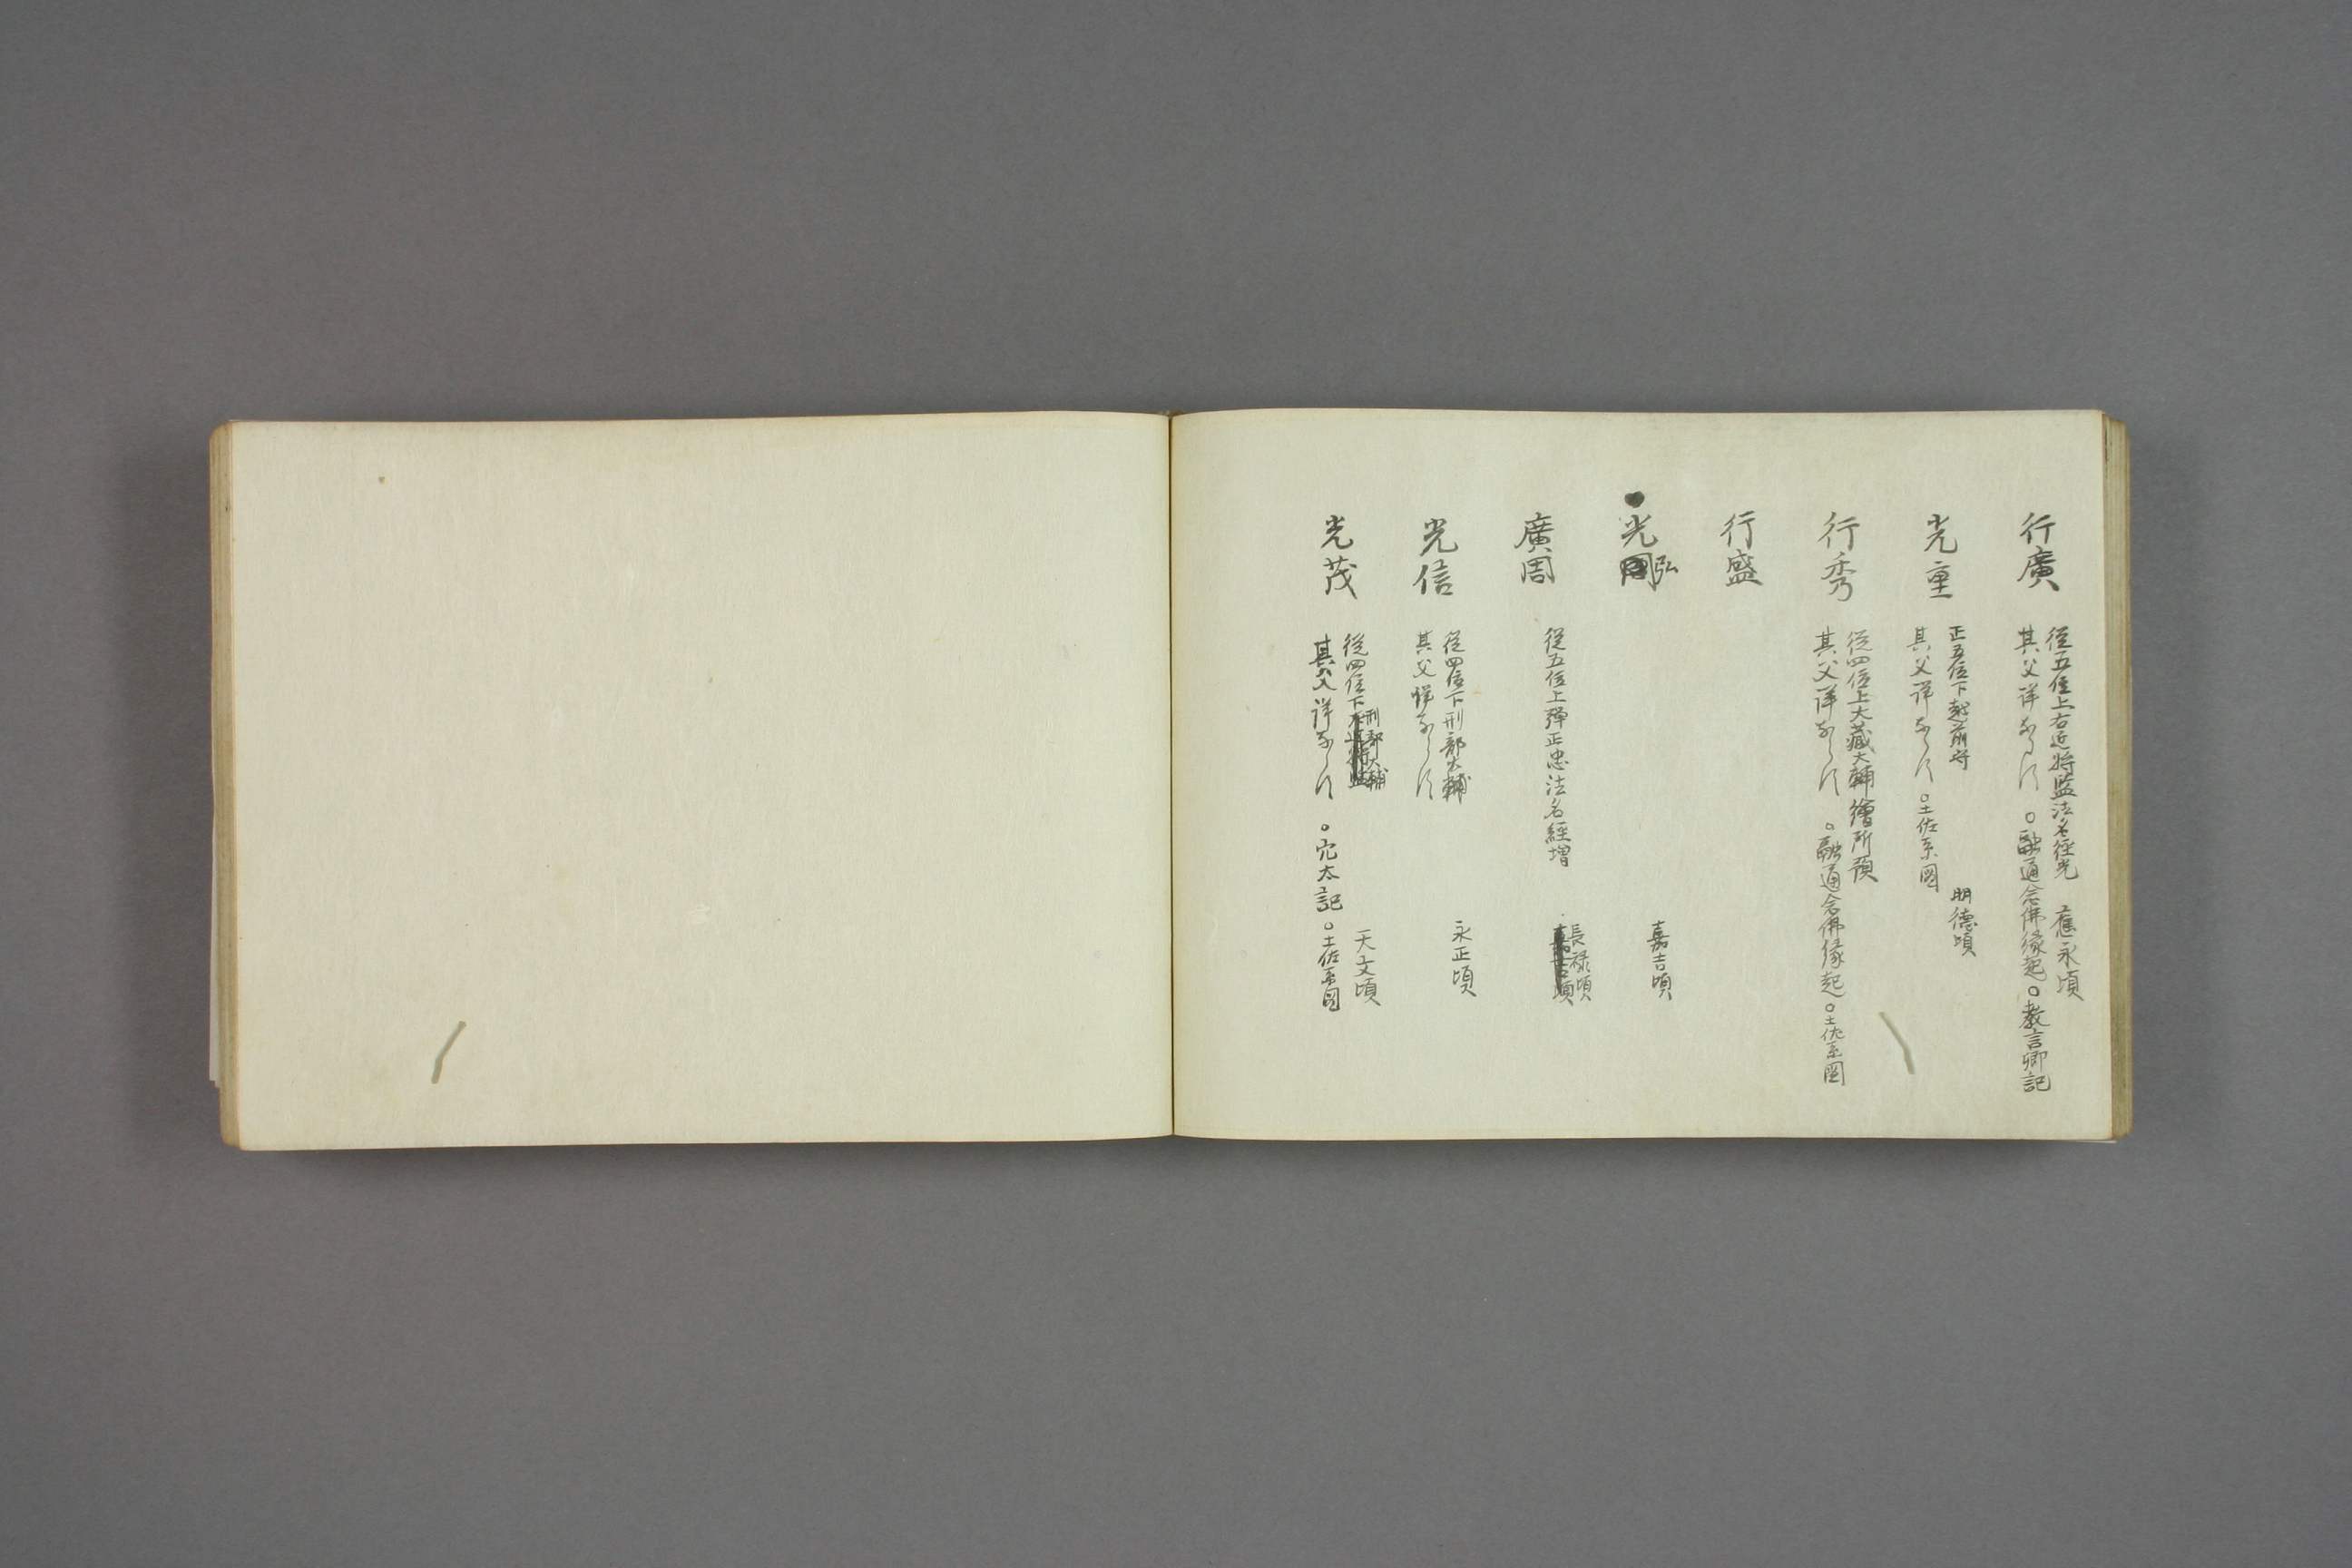 行廣
從五位上右近將監法名經光 應永頃
其父詳ならす ○融通念佛縁起○教言卿記
光重
正五位下越前守 明德頃
其父詳ならす ○土佐系圖
行秀
從四位上大藏大輔繪所預
其父詳ならす ○融通念佛縁起○土佐系圖
行盛
光弘
嘉吉頃
廣周
從五位上彈正忠法名經增
長禄頃
光信
從四位下刑部大輔 永正頃
其父詳ならす
光茂
從四位下刑部大輔 天文頃
其父詳ならす ○穴太記○土佐系圖